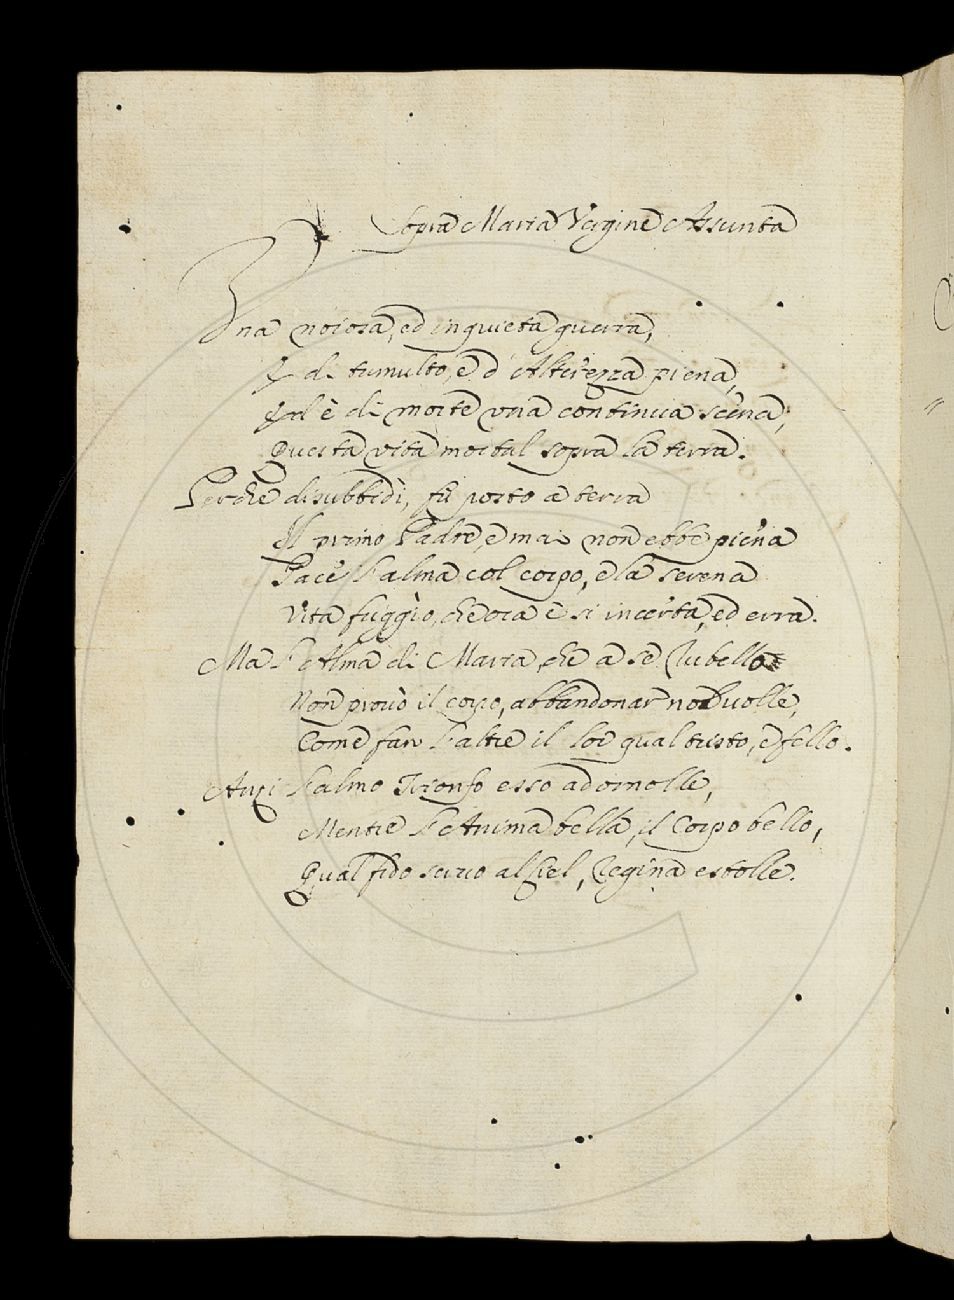 Sopra Maria Vergine Assunta
Una noiosa, ed inquieta guerra,
E di tumulto, e d'Alterezza piena,
Ed è di morte una continua scena,
Questa vita mortal sopra la terra.
Perche disubbidì, fù posto a terra
Il primo Padre, e mai non ebbe piena
Pace l'alma col corpo, e la serena
Vita fuggìo, che ora è si incerta, ed erra.
Ma l'Alma di Maria, che a se rubello
Non provò il corpo, abbandonar nol volle,
Come fan l'altre il lor qual tristo, e fello.
Anzi l'almo Trionfo esso adornolle,
Mentre l'Anima bella, il Corpo bello,
Qual fido servo al Ciel, Regina estolle.